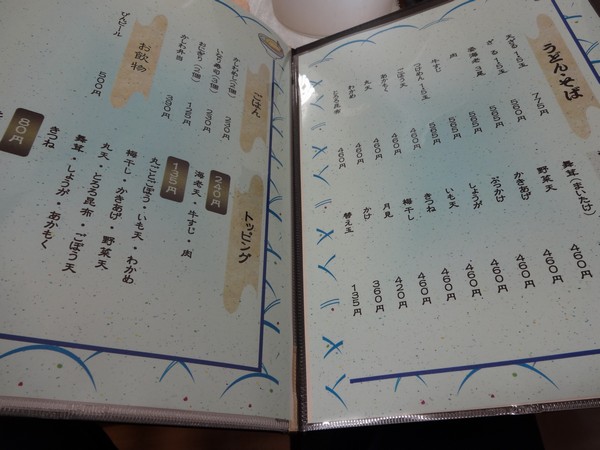 うどん・そば
775円
560円
565円
565円
肉
565円
牛すじ
565円
460円
ごぼう天
460円
460円
丸天
460円
わかめ
460円
とろろ昆布
460円
舞茸(まいたけ)
460円
野菜天
460円
かきあげ
460円
ぶっかけ
460円
しょうが
460円
いも天
460円
きつね
460円
梅干し
460円
月見
420円
かけ
360円
替え玉
135円
ごはん
かしわめし(2個)
230円
いなり寿司(3個)
230円
おにぎり(1個)
かしわ弁当
お飲物
びんビール
500円
トッピング
240円
海老天・牛すじ・肉
135円
丸ごとごぼう・いも天・わかめ
梅干し・かきあげ・野菜天
丸天・とろろ昆布・ごぼう天
舞茸・しょうが・あかもく
きつね
80円